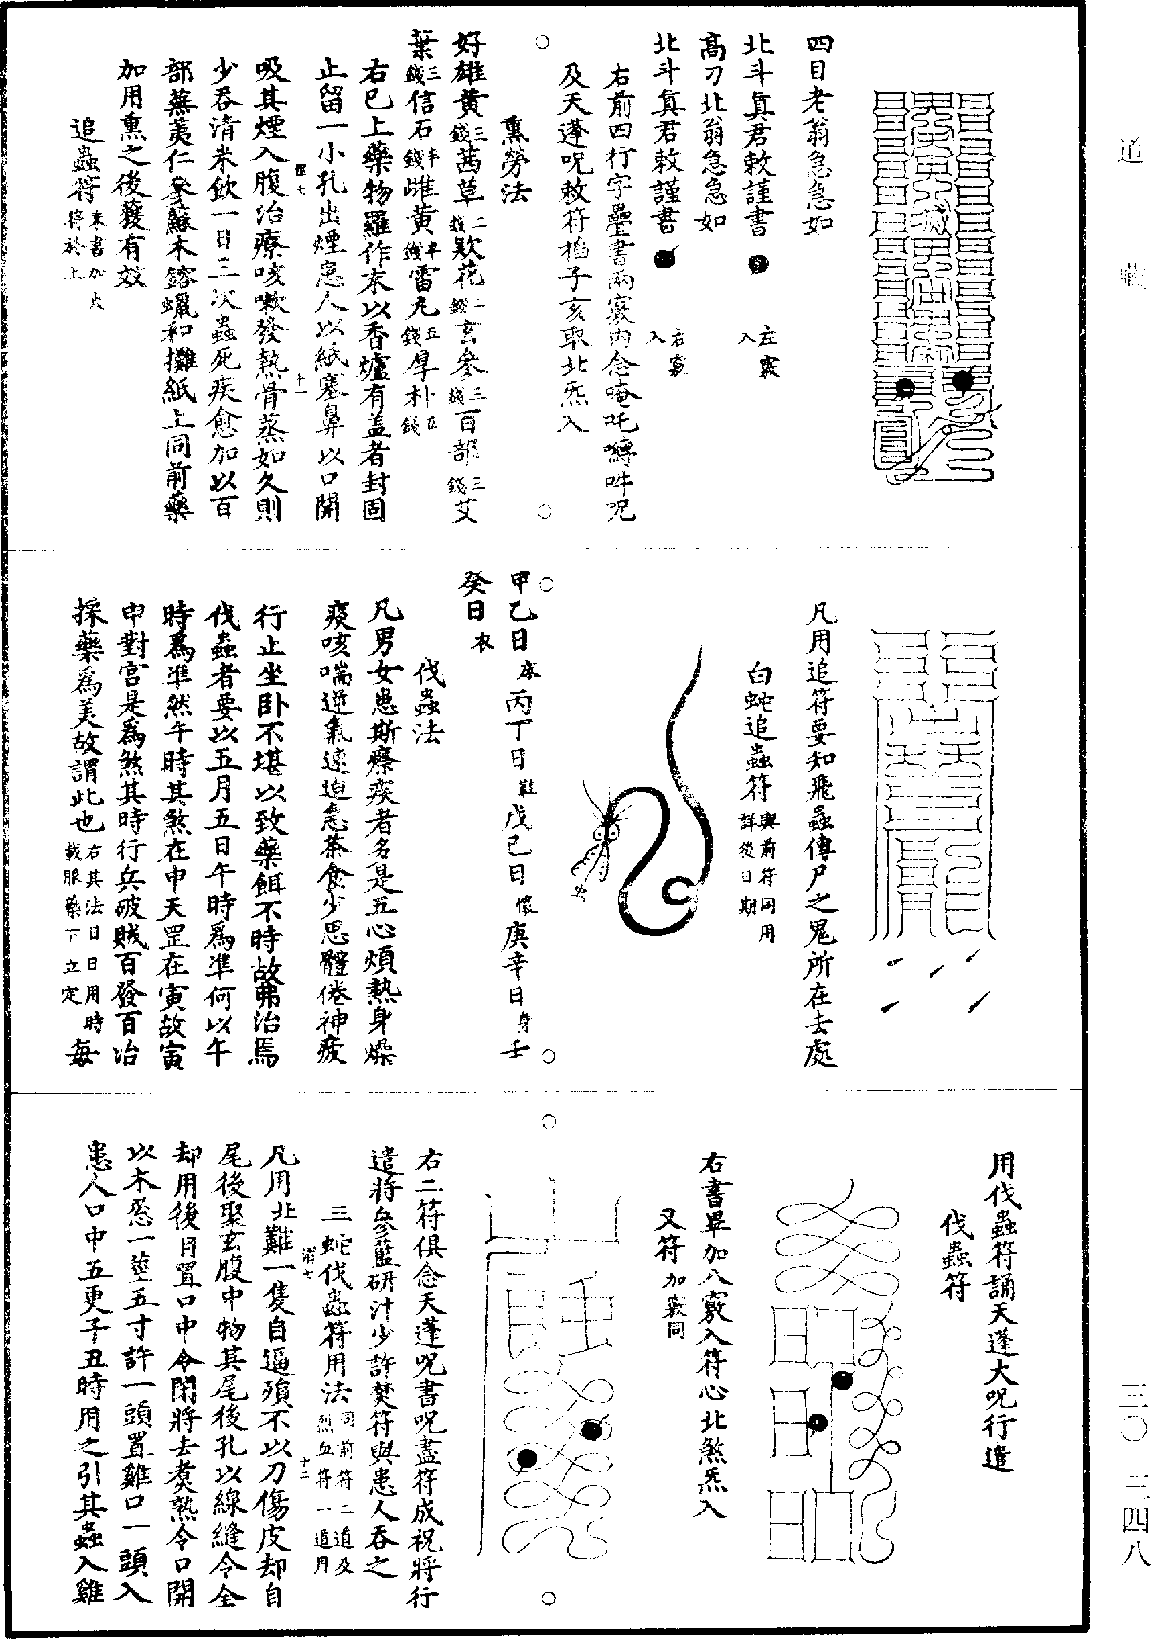 道藏
三〇 三四八
四目老翁急急如
北斗真君敕謹書 左竅入
高刀北翁急急如
北斗真君敕謹書 右竅入
右前四行字疊書兩竅內念唵吒嚩吽咒
及天蓬呪敕符指子亥取北炁入
熏勞法
好雄黃三錢茜草二錢欵花二錢玄參三錢百部三錢艾
葉三錢信石半錢雌黃半錢雷丸五錢厚朴五錢
右已上藥物羅作末以香爐有蓋者封固
止留一小孔出煙患人以紙塞鼻以口開
吸其煙入腹治療咳嗽發熱骨蒸如久則
少吞清米飲一日三次蟲死疾愈加以百
部蕪荑仁參蘇木鎔蠟和攤紙上同前藥
加用熏之後獲有效
追蟲符 朱書加火將於上
凡用追符要知飛蟲傳尸之鬼所在去處
白蛇追蟲符 與前符同用詳後日期
甲乙日床丙丁日鞋戊己日懷庚辛日身壬
癸日衣
伐蟲法
凡男女患斯療疾者多是五心煩熱身燥
痰咳喘逆氣速迫急茶食少思體倦神疲
行止坐卧不堪以致藥餌不時故弗治焉
伐蟲者要以五月五日午時為準何以午
時為準然午時其煞在申天罡在寅故寅
申對宮是為煞其時行兵破賊百發百治
採藥為美故謂此也 右其法日日用時每載服藥下立定
用伐蟲符誦天蓬大呪行遣
伐蟲符
右書畢加八竅入符心北煞炁入
又符 加竅同
右二符俱念天蓬呪書呪盡符成祝將行
遣將參藍研汁少許焚符與患人吞之
三蛇伐蟲符用法 同前符二道及烈血符一道用
凡用北雞一隻自逼殞不以刀傷皮却自
尾後聚玄腹中物其尾後孔以線縫令全
却用後日置口中令閉將去煑熟令口開
以木䓗一莖五寸許一頭置雞口一頭入
患人口中五更子丑時用之引其蟲入雞